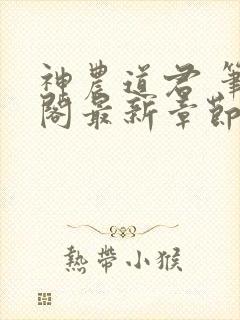 神農道君 筆
閣最新章節
熱帶小猴